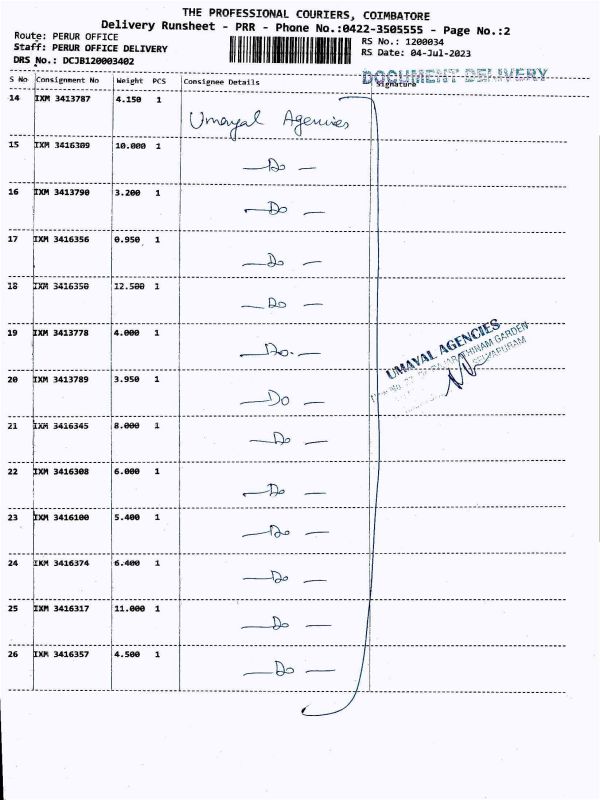 THE PROFESSIONAL COURIERS, COIMBATORE
Delivery Runsheet - PRR - Phone No.:0422-3505555 - Page No.:2
Route: PERUR OFFICE
RS No.: 1200034
Staff: PERUR OFFICE DELIVERY
RS Date: 04-Jul-2023
DRS No.: DCJB120003402
DOCUMENT DELIVERY
S No Consignment No Weight PCS Consignee Details Signature
14 IXM 3413787 4.150 1 Umayal Agencies
15 IXM 3416309 10.000 1 — Do —
16 IXM 3413790 3.200 1 — Do —
17 IXM 3416356 0.950 1 — Do —
18 IXM 3416350 12.500 1 — Do —
19 IXM 3413778 4.000 1 — Do. —
20 IXM 3413789 3.950 1 — Do —
21 IXM 3416345 8.000 1 — Do —
22 IXM 3416308 6.000 1 — Do —
23 IXM 3416100 5.400 1 — Do —
24 IKM 3416374 6.400 1 — Do —
25 IXM 3416317 11.000 1 — Do —
26 IXM 3416357 4.500 1 — Do —
UMAYAL AGENCIES
GARDEN
SELVAPURAM